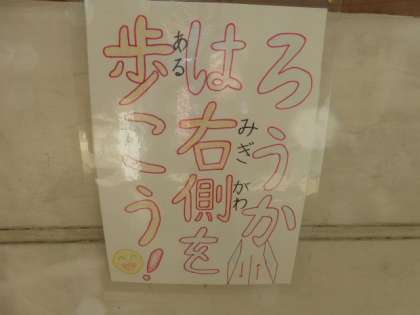 ろうか
は右側を
歩こう!
みぎ がわ
ある